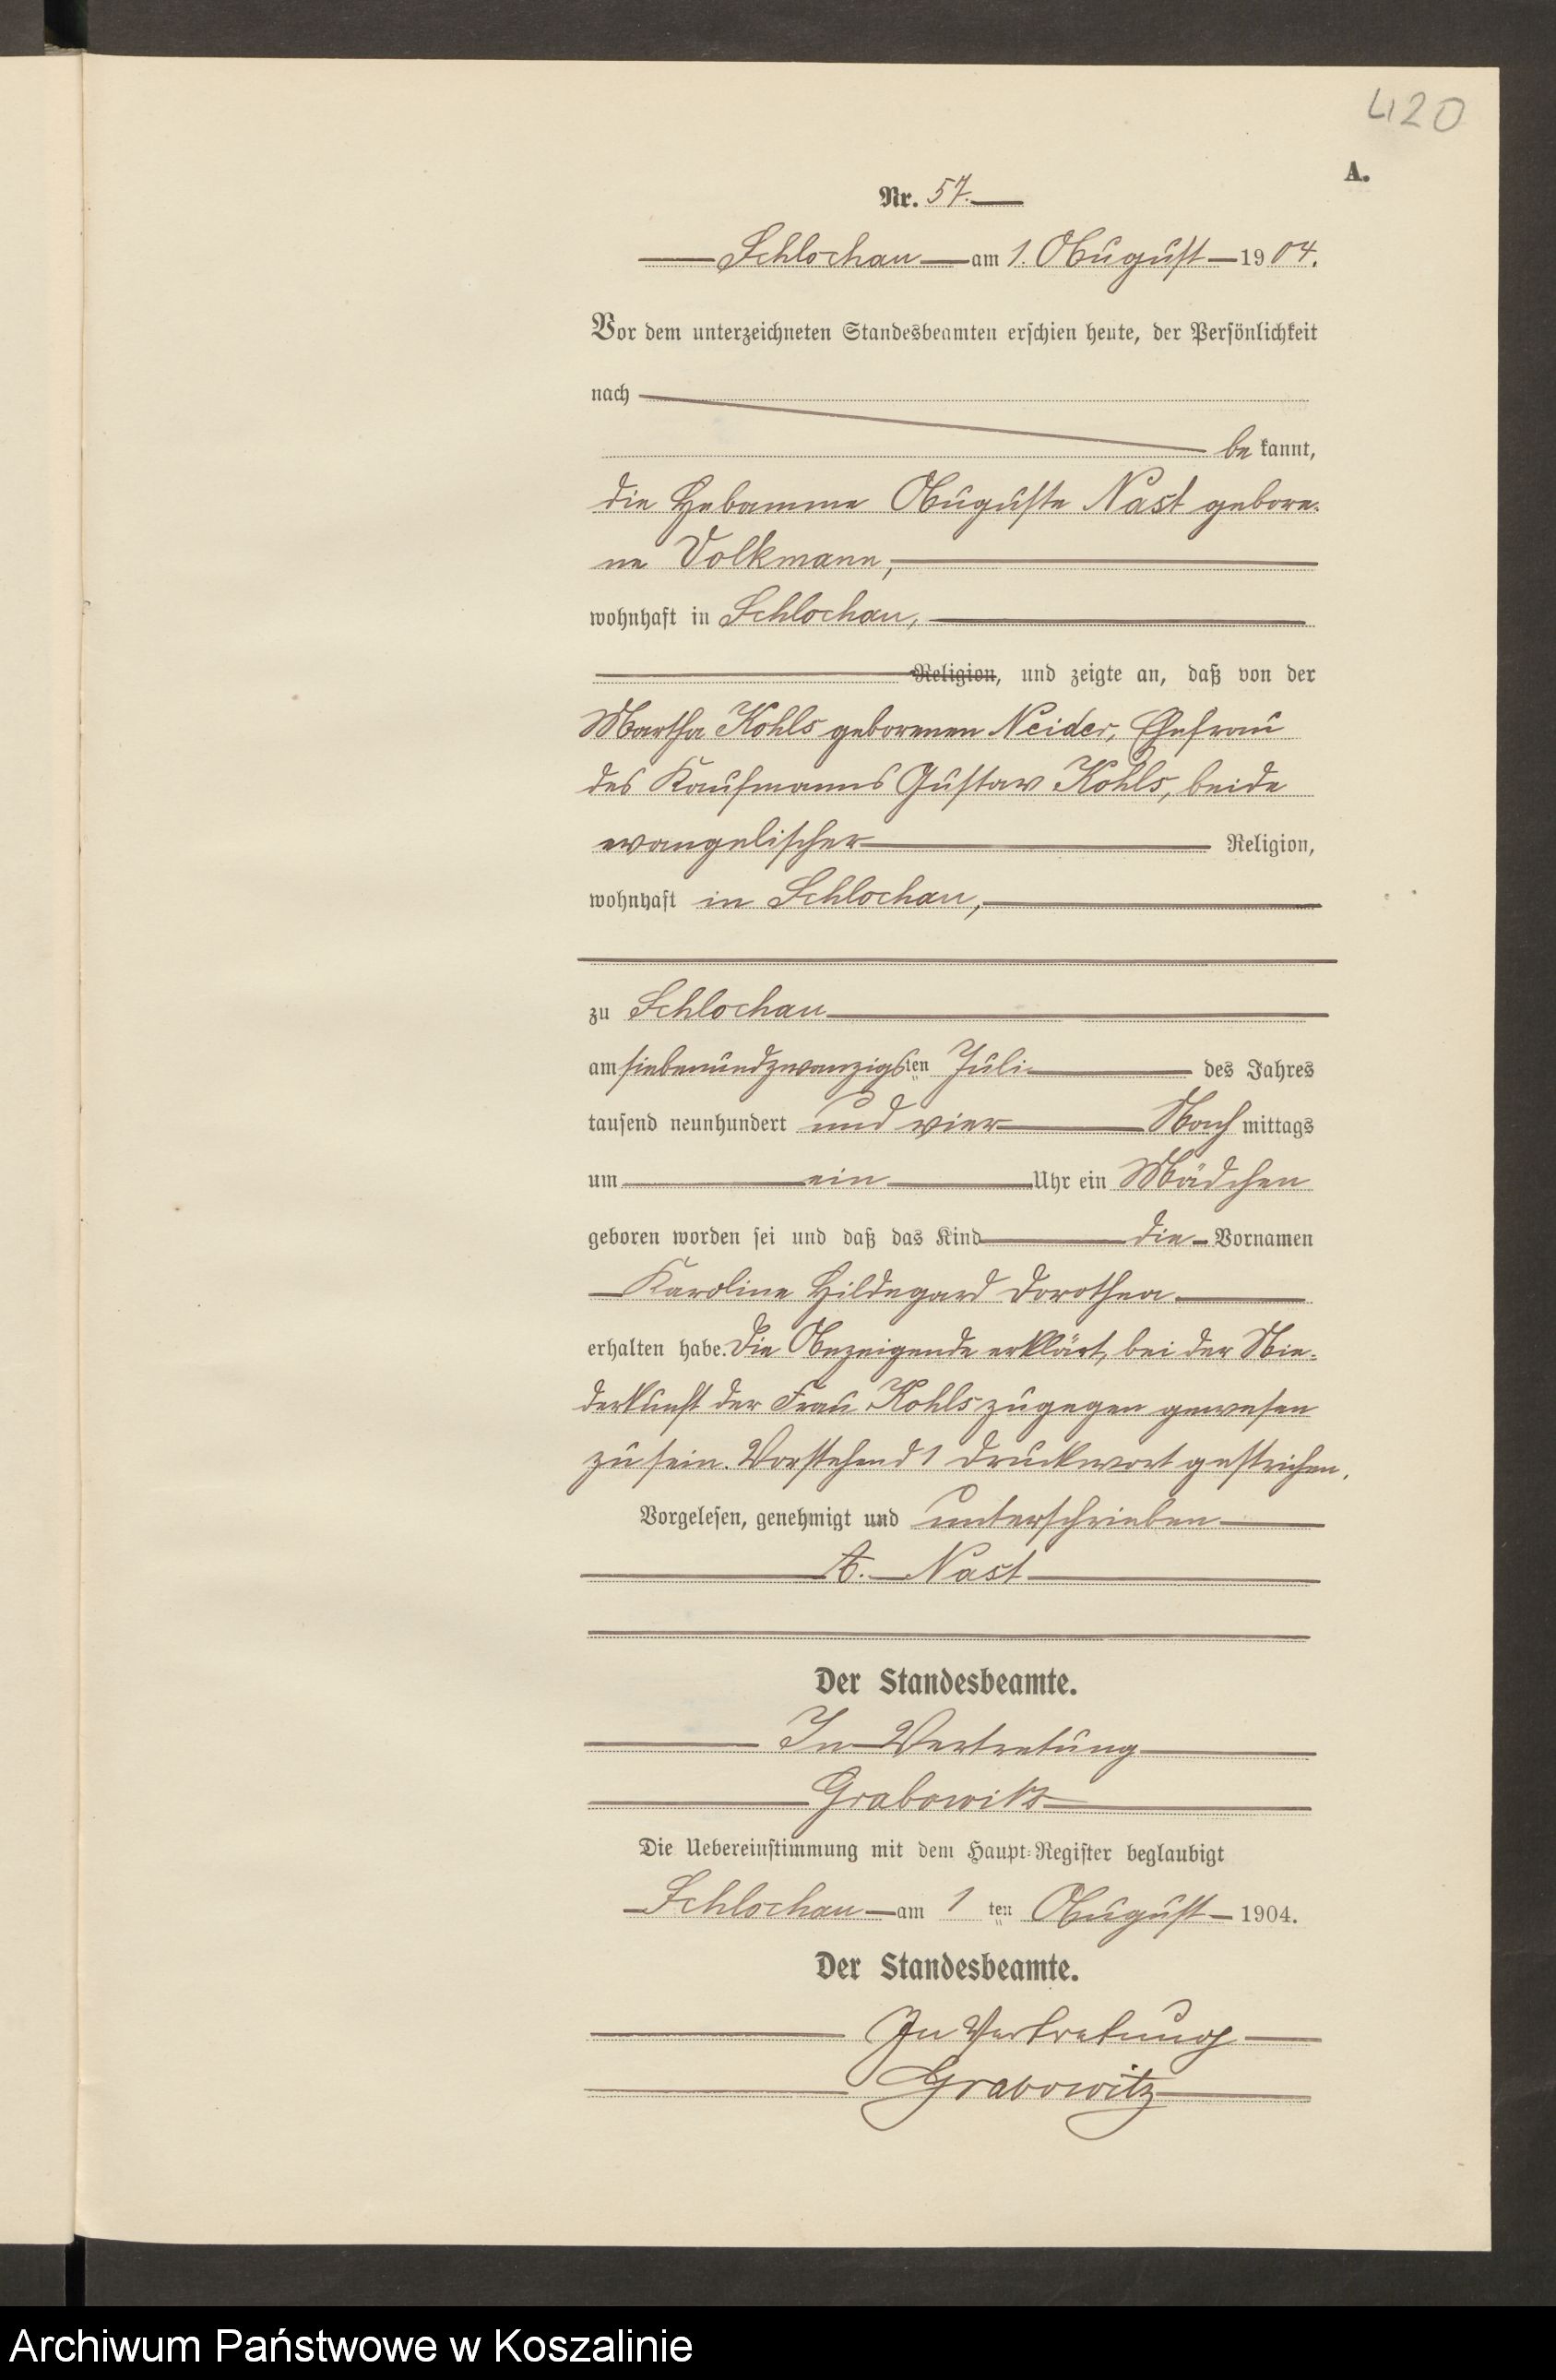 420
A.
Nr. 57.
Schlochau am 1. August 1904.
Vor dem unterzeichneten Standesbeamten erschien heute, der Persönlichkeit
nach
be kannt,
die Hebamme Auguste Nast gebore-
ne Volkmann,
wohnhaft in Schlochau,
Religion, und zeigte an, daß von der
Martha Kohls geborenen Neider, Ehefrau
des Kaufmanns Gustav Kohls, beide
evangelischer Religion,
wohnhaft in Schlochau,
zu Schlochau
am siebenundzwanzigsten Juli des Jahres
tausend neunhundert und vier Nachmittags
um ein Uhr ein Mädchen
geboren worden sei und daß das Kind die Vornamen
Karoline Hildegard Dorothea
erhalten habe. Die Anzeigende erklärt, bei der Nie-
derkunft der Frau Kohls zugegen gewesen
zu sein. Vorstehend 1 Druckwort gestrichen.
Vorgelesen, genehmigt und unterschrieben
A. Nast
Der Standesbeamte.
In Vertretung
Grabowitz
Die Uebereinstimmung mit dem Haupt-Register beglaubigt
Schlochau am 1 ten August 1904.
Der Standesbeamte.
In Vertretung
Grabowitz
Archiwum Państwowe w Koszalinie